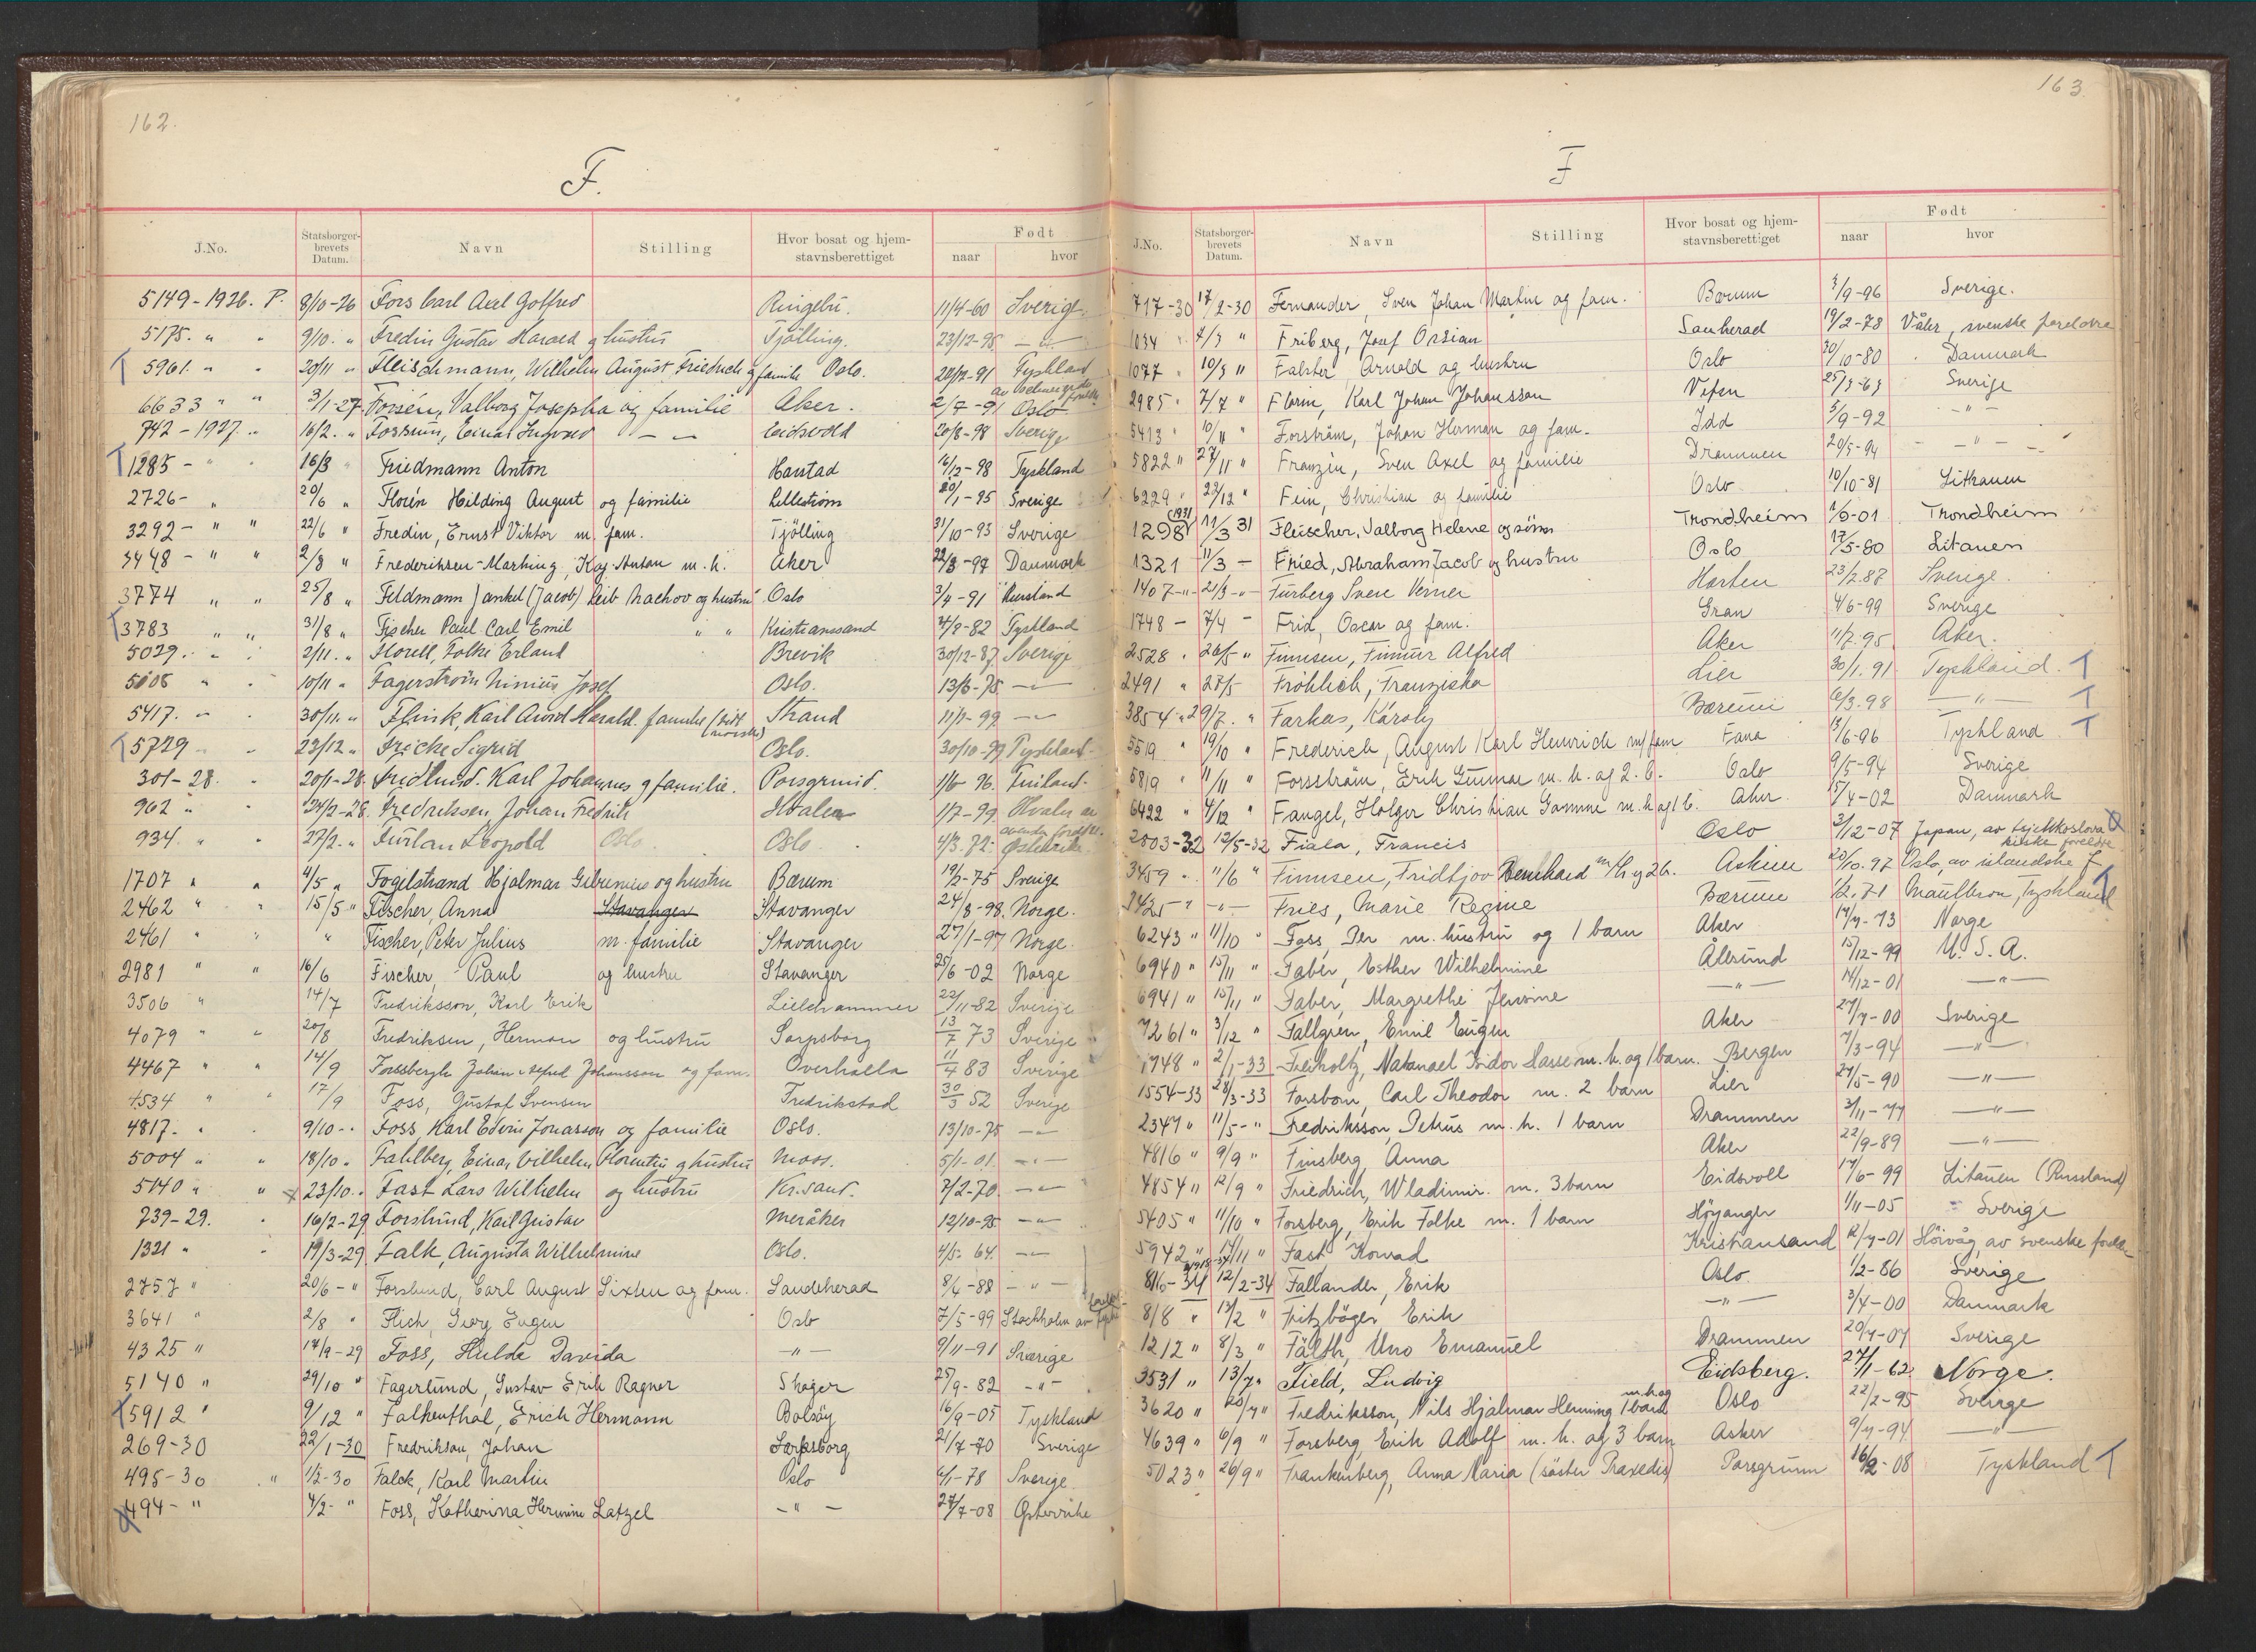 162.
F.
J.No. Statsborgerbrevets Datum. Navn Stilling Hvor bosat og hjemstavnsberettiget Født naar hvor
5149-1926. P. 8/10-26 Fors Carl Axel Gotfred Ringebu. 11/4-60 Sverige.
5175. " " 9/10. " Fredin Gustav Harald og hustru Tjölling. 23/12-95 — " —
T 5961. " " 20/11 " Fleischmann, Wilhelm August Friedrich og familie Oslo. 20/12-91 Tyskland
6633 " " 3/1-27. Forsén, Valborg Josepha og familie Aker. 2/7-91 Oslo av svenske foreldre
742-1927 " 16/2. " Forsum, Einar Ingvar — " — Eidsvold 20/8-98 Sverige
T 1285 - " " 16/3 " Friedmann Anton Harstad 16/2-98 Tyskland
2726 - " 20/6 " Florén Hilding August og familie Lillestrøm 20/1-95 Sverige
3292 - " " 22/6 " Fredin, Ernst Viktor m. fam. Tjölling 31/10-93 Sverige
3448 - " " 2/8 " Frederiksen-Marhing, Kaj Anton m. h. Aker 22/8-97 Danmark
3774 " " 25/8 " Feldmann Jankel (Jacob) Leib Nachov og hustru Oslo 3/4-91 Russland
T 3783 " " 31/8 " Fischer Paul Carl Emil " " Kristianssand 4/8-82 Tyskland
5029. " " 2/11. " Florell, Folke Erland Brevik 30/12-87 Sverige
5108 " " 10/11 " Fagerström Ninius Josef Oslo. 13/6-75 — " —
5417. " " 30/11. " Flink, Karl Arvid Harald. familie Strand 11/1-99 — " —
T 5729 " " 23/12 " Fricke Sigrid Oslo. 30/10-99 Tyskland
301-28. " 20/1-28 Fridlund. Karl Johannes og familie. Porsgrund. 1/6 96. Finland.
962 " " 24/2-28. Fredriksen, Johan Fredrik Hvaler 1/7-99 Hvaler av svenske foreldre.
934. " " 27/2. " Furlan Leopold Oslo. Oslo. 4/3. 72. Østerrike.
1707 " " 4/5 " Fogilstrand Hjalmar Gibrenius og hustru Bærum 19/2-75 Sverige
2462 " " 15/5 " Fischer, Anna Stavanger Stavanger 24/8-98. Norge.
2461 " " " Fischer, Peter Julius m. familie Stavanger 27/1-97 Norge.
2981 " " 16/6 Fischer, Paul og hustru Stavanger 25/6-02 Norge
3506 " 14/7 Fredriksson, Karl Erik Lillehammer 22/11-82 Sverige
4079 " " 20/8 Fredriksen, Herman og hustru Sarpsborg 13/7 73 Sverige
4467 " " 14/9 Forssbergh Johan Alfred Johansson og fam. Overhalla 11/4 83 Sverige
4534 " " 17/9 Foss, Gustaf Svensen Fredrikstad 30/3 52 Sverige
4817. " " 9/10 - " Foss, Karl Edvin Jonasson og familie Oslo. 13/10-75 — " —
5004 " " 18/10 " Fahlberg, Einar Vilhelm Florentin og hustru Moss. 5/1-01. — " —
5140 " " x 23/10. " Fast Lars Wilhelm og hustru Kr.sand. 7/2-70. — " —
739-29. " 16/2-29 Forslund, Karl Gustav Meråker 12/10-95 — " —
1321 " " 19/3-29 Falk, Augusta Wilhelmine Oslo. 4/5-64. — " —
2757 " 20/6 - " Forslund, Carl August Sixten og fam. Saudeherad 8/4-88 — " —
3641 " 2/8 " Flich, Georg Eugen Oslo 7/5-99 Stockholm av tyske foreldre
4325 " 14/9-29 Foss, Hulda Davida — " — 9/11-91 Sverige
5140 " 29/10 " Fagerlund, Gustav Erik Ragnar Skoger 25/9-82 — " —
T 5912 " 9/12 " Falkenthal, Erich Hermann Bolsöy 16/9-05 Tyskland
269-30 22/1-30 Fredrikson, Johan Sarpsborg 21/7-70 Sverige
495-30 " 1/2-30 Falck, Karl Martin Oslo 6/1-78 Sverige
494 - " 4/2 - " Foss, Katharina Hermine Latzel — " — 27/7-08 Østerrike
163
F
J.No. Statsborgerbrevets Datum. Navn Stilling Hvor bosat og hjemstavnsberettiget Født naar hvor
717-30 17/2-30 Fernander, Sven Johan Martin og fam. Bærum 3/9-96 Sverige.
1034 " 4/3 " Friberg, Josef Ossian Sauherad 19/2-78 Våler, svenske foreldre
1077 " 10/3 " Falster Arnold og hustru Oslo 30/10-80 Danmark
2985 " 7/7 " Florin, Karl Johan Johansson Vefsn 25/3-63 Sverige
5413 " 10/11 " Forsträm, Johan Herman og fam. Idd 5/9-92 — " —
5822 " 27/11 " Franzén, Sven Axel og familie Drammen 20/5-94 — " —
6229 " 22/12 " Fein, Christian og familie Oslo 10/10-81 Lithauen
1298 (1931) 11/3 31 Fleischer, Valborg Helene og sönn Trondheim 1/6-01 Trondheim
1321 11/3 — Fried, Abraham Jacob og hustru Oslo 17/5-80 Litauen
1407 - " - 21/3 - " - Furberg Svere Verner Horten 23/2.87 Sverige.
1748 — 7/4 — Frid, Oscar og fam. Gran 4/6-99 Sverige
2528 " 26/5 " Finnsen, Finnur Alfred Aker 11/2-95 Aker.
2491 " 28/5 Fröhlich, Franziska Lier 30/1.91 Tyskland. T
3854 " 29/7. " Farkas, Károly Bærum 6/3.98 — " — T
5519 " 19/10 " Frederich, August Karl Heinrich m/fam Fana 13/6-96 Tyskland T
5819 " 11/11 " Forsström, Erik Gunnar m. h. og 2. b. Oslo 9/5-94 Sverige
6422 " 4/12 " Fangel, Holger Christian Gamme m. h. og 1 b. Aker 15/4-02 Danmark
2003-32 12/5-32 Fiala, Francis Oslo 3/12-07 Japan, av tsjekkoslovakiske foreldre
3459 " 11/6 " Finnsen, Fridtjov Bernhard m/h og 2 b. Askim 20/10.97 Oslo, av islandske f
3425 " - " - Fries, Marie Regine Bærum 1/2.71 Maulbron, Tyskland T
6243 " 11/10 " Foss, Per m. hustru og 1 barn Aker 14/4-73 Norge
6940 " 15/11 " Faber, Esther Wilhelmine Ålesund 15/12-99 U.S.A.
6941 " 15/11 " Faber, Margrethe Jensine — " — 14/12-01 — " —
7261 " 3/12 " Fallgren, Emil Eugen Aker 27/7-00 Sverige
1748 " 2/1-33 Freiholtz, Natanael Isidor Lasse m. h. og 1 barn. Bergen 7/3-94 — " —
1554-33 28/3-33 Forsbom, Carl Theodor m. 2 barn Lier 24/5-90 — " —
2347 " 11/5 - " Fredriksson, Petrus m. h. 1 barn Drammen 3/11-77 — " —
4816 " 9/9 " Finsberg, Anna Aker 22/9-89 — " —
4854 " 12/9 " Friedrich, Wladimir. m. 3 barn Eidsvoll 14/6-99 Litauen (Russland)
5405 " 11/10 " Forsberg, Erik Folke m. 1 barn Höyanger 1/11-05 Sverige
5942 " 14/11 " Fast, Konrad Kristiansand 12/7-01 Hövåg, av svenske foreldre
816-34 12/2-34 Fallander, Erik Oslo 1/2-86 Sverige
818 " 13/2 " Fritzböger, Erik — " — 3/4-00 Danmark
1212 " 8/3 " Fälth, Uno Emanuel Drammen 20/4-07 Sverige
3531 " 13/7 " Field, Ludvig Eidsberg. 27/1-62 Norge.
3620 " 20/7 " Fredriksson, Nils Hjalmar Henning m. h. og 1 barn Oslo 22/2-95 Sverige
4639 " 6/9 " Forsberg, Erik Adolf m. h. og 3 barn Asker 9/4-94 — " —
5023 " 26/9 " Frankenberg, Anna Maria (söster Praxedis) Porsgrunn 16/2-08 Tyskland T